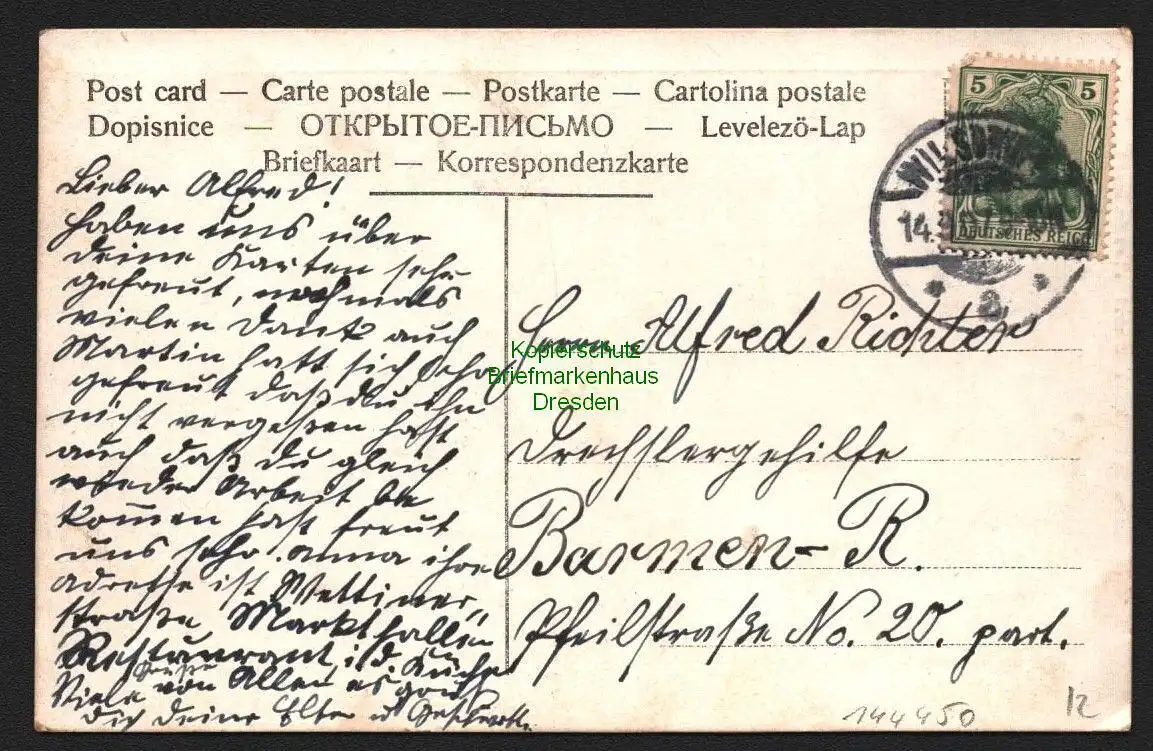 Post card — Carte postale — Postkarte — Cartolina postale
Dopisnice — ОТКРЫТОЕ-ПИСЬМО — Levelezö-Lap
Briefkaart — Korrespondenzkarte
5 5
DEUTSCHES REICH
14.
2
Lieber Alfred!
Haben uns über
deine Karten sehr
gefreut, nochmals
vielen Dank auch
Martin hatt sich
gefreut daß du ihn
nicht vergeßen hast
auch daß du gleich
wieder Arbeit be
kom̅en hast freut
uns sehr. Anna ihre
adresse ist Wettiner,,
straße Markthallen
Restaurant i. d. Küche
Viele Grüße von Allen es
dich deine Elter u Geschwister
Herrn Alfred Richter
Drechslergehilfe
Barmen-R.
Pfeilstraße No. 20. part.
Kopierschutz
Briefmarkenhaus
Dresden
144450
12